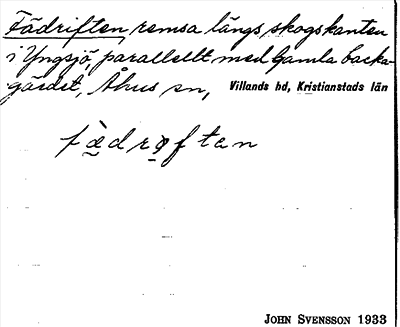 Fädriften, remsa längs skogskanten
i Yngsjö, parallellt med Gamla backa-
gärdet, Åhus sn, Villands hd, Kristianstads län
fædrɩften
JOHN SVENSSON 1933